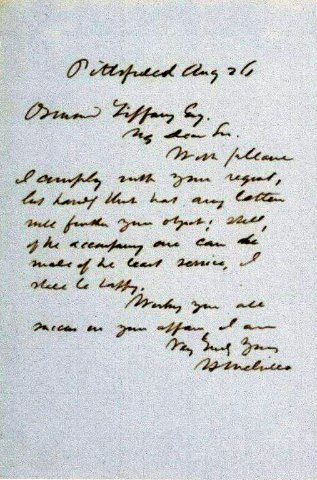 Pittsfield Aug 26
Osmond Tiffany Esq.
My dear Sir.
With pleasure
I comply with your request,
but that any letter
will further your object; still,
if the accompany one can be
made of the least service, I
shall be happy.
Wishing you all
success in your affair, I am
Very Truly Yours
H Melville